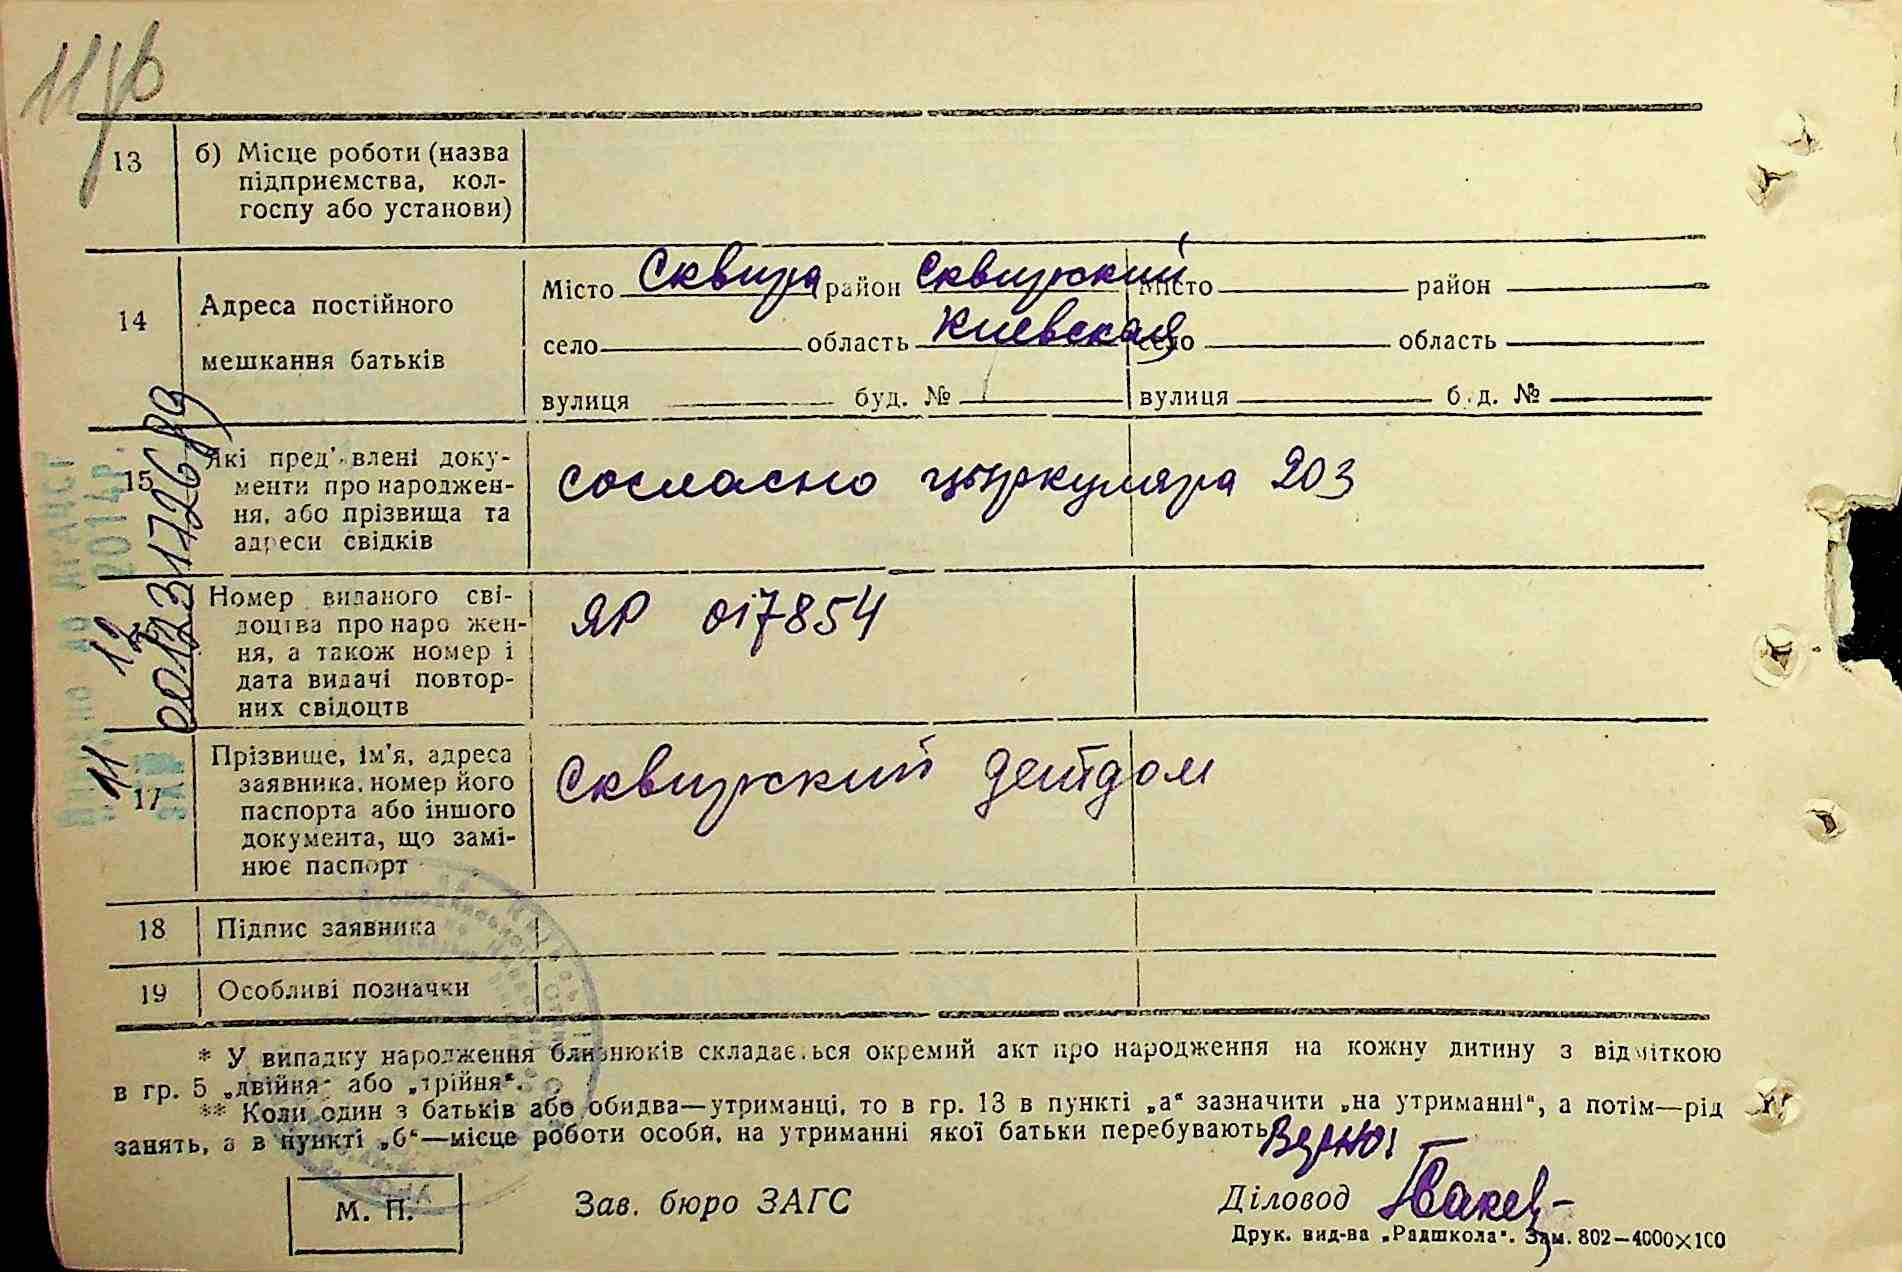 13 б) Місце роботи (назва
підприємства, кол-
госпу або установи)
14 Адреса постійного
мешкання батьків
Місто Сквира район Сквирский Місто район
село область Киевская село область
вулиця буд. № вулиця б.д. №
15 Які пред'влені доку-
менти про народжен-
ня, або прізвища та
адреси свідків
согласно циркуляра 203
Номер виданого сві-
доцтва про народжен-
ня, а також номер і
дата видачі повтор-
них свідоцтв
ЯР 017854
17 Прізвище, ім'я, адреса
заявника, номер його
паспорта або іншого
документа, що замі-
нює паспорт
Сквирский детдом
18 Підпис заявника
19 Особливі позначки
00123172689
11 12
2014р.
* У випадку народження близнюків складається окремий акт про народження на кожну дитину з відміткою
в гр. 5 „двійня“ або „трійня“.
** Коли один з батьків або обидва—утриманці, то в гр. 13 в пункті „а“ зазначити „на утриманні“, а потім—рід
занять, а в пункті „б“—місце роботи особи, на утриманні якої батьки перебувають.
Верно!
М. П. Зав. бюро ЗАГС Діловод
Друк. вид-ва „Радшкола“. Зам. 802—4000×100